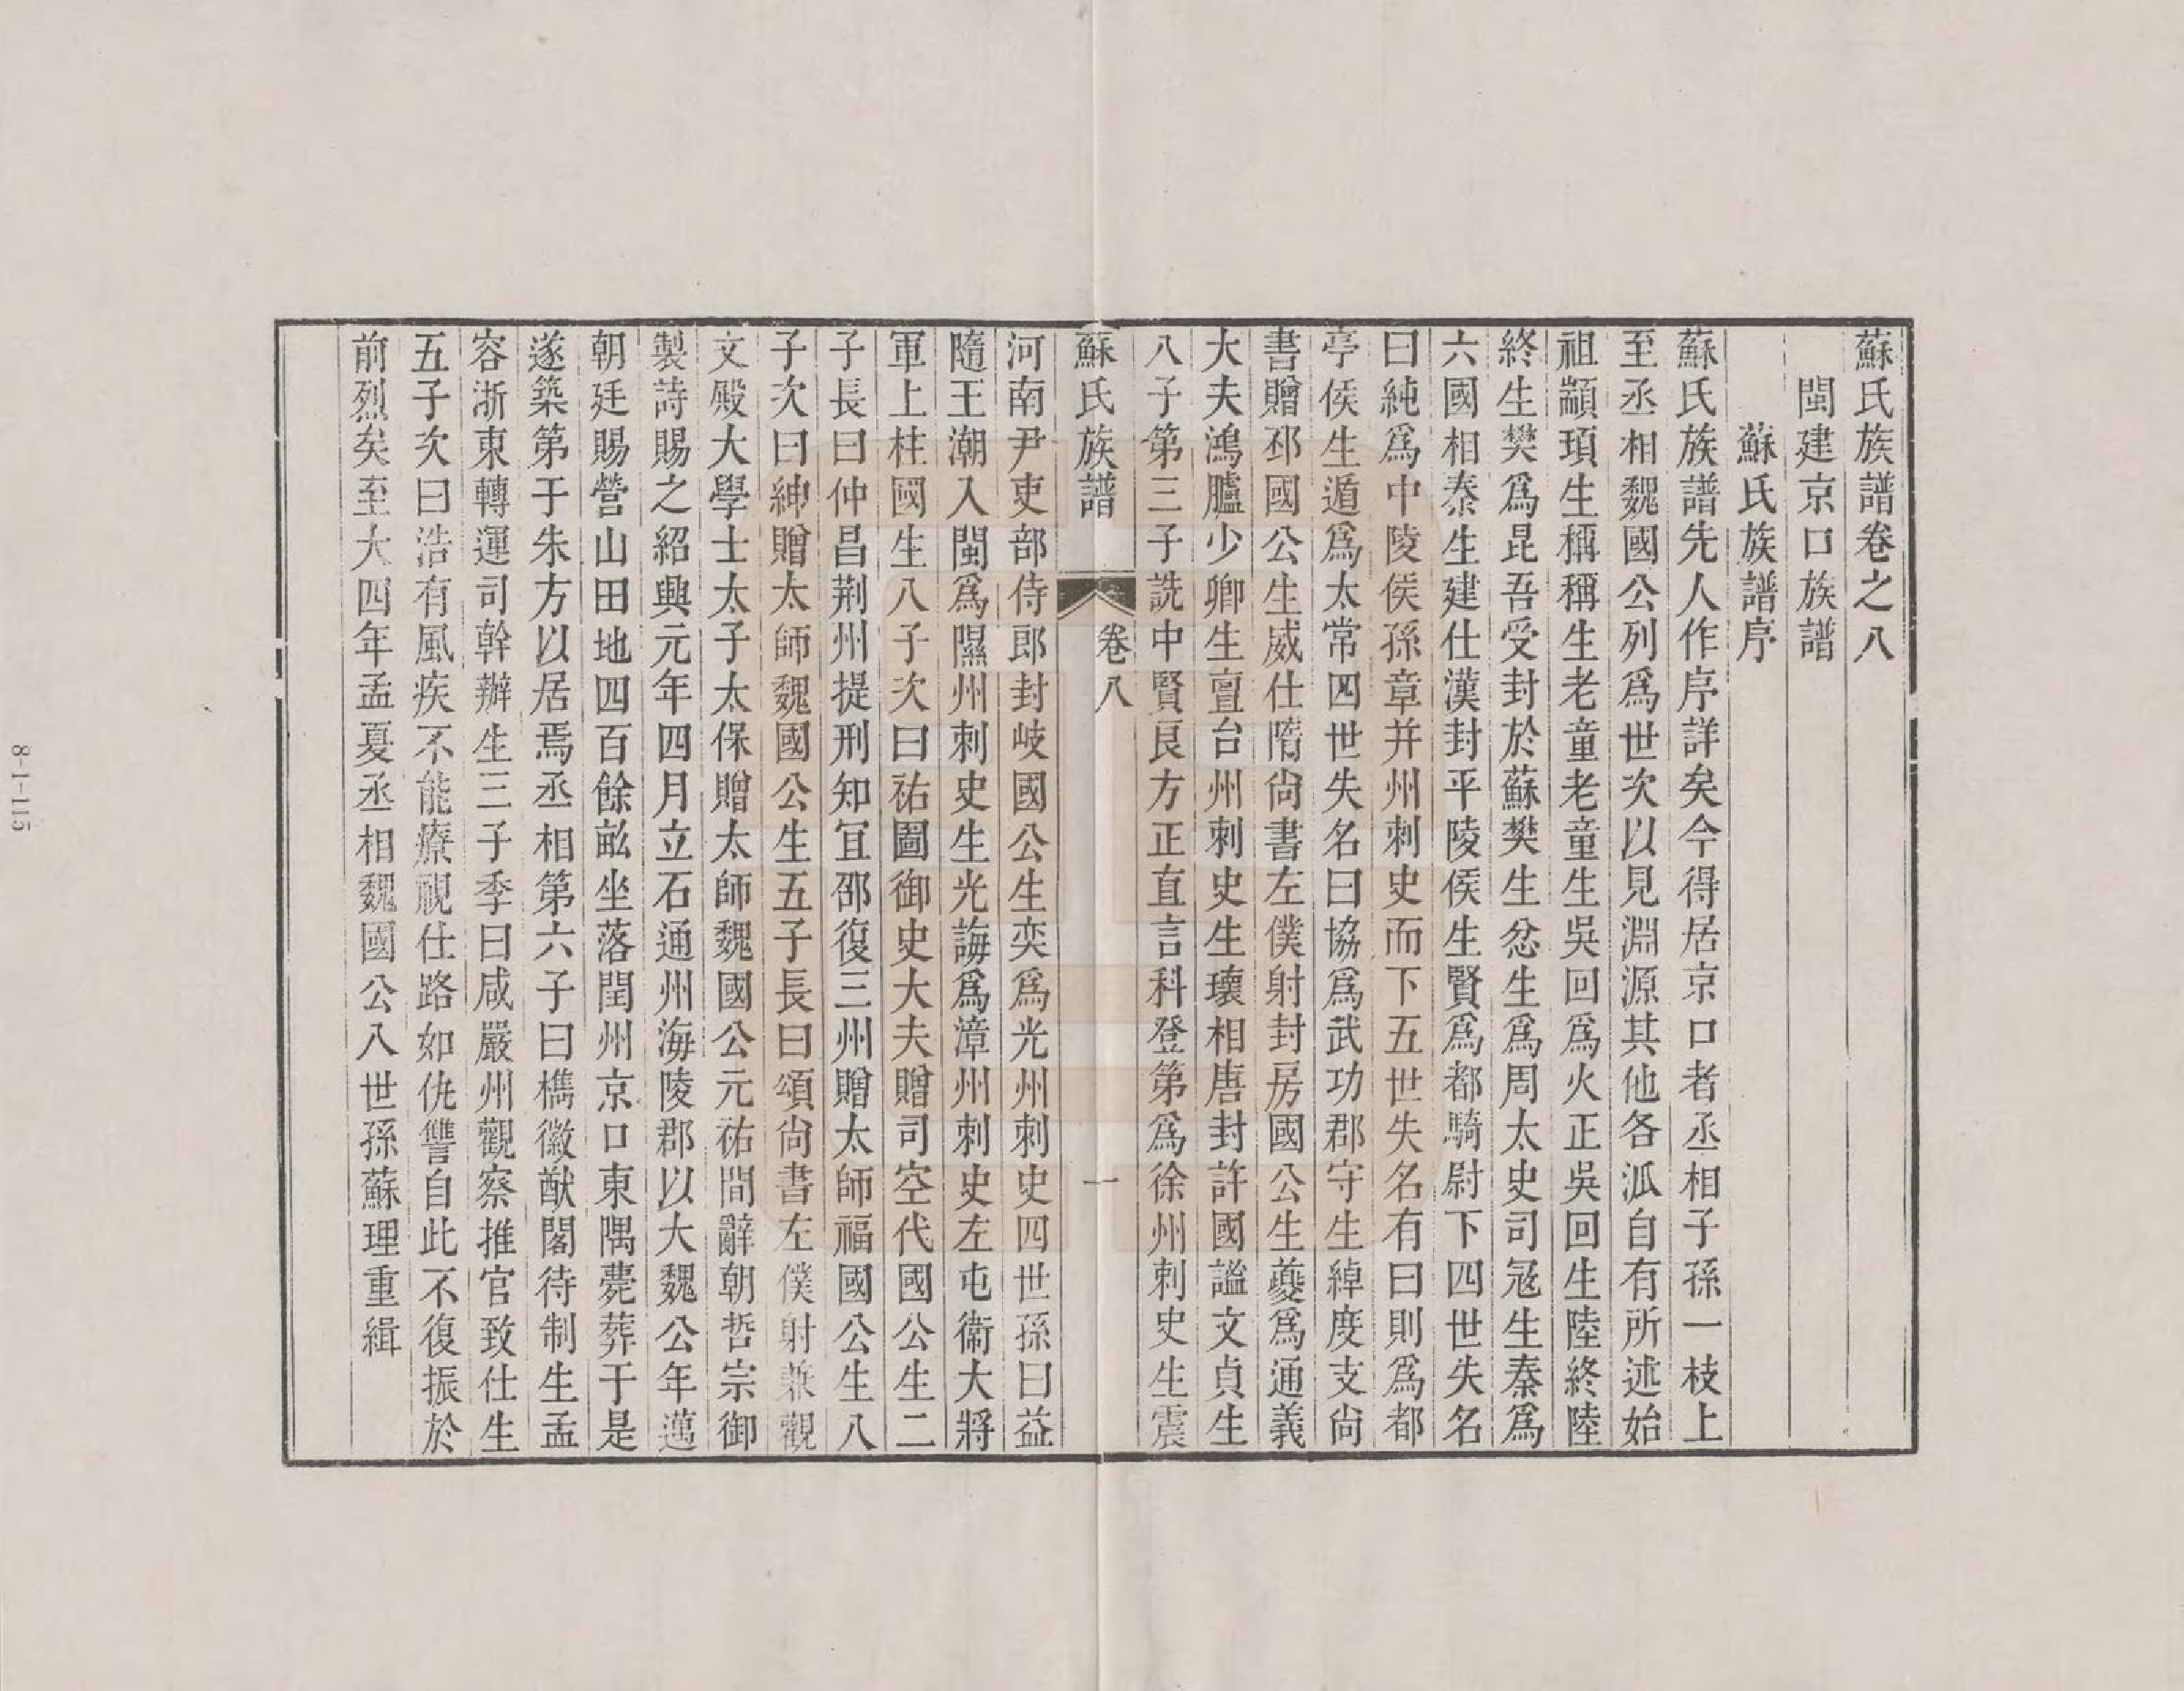 蘇氏族譜卷之八
閩建京口族譜
蘇氏族譜序
蘇氏族譜先人作序詳矣今得居京口者丞相子孫一枝上
至丞相魏國公列爲世次以見淵源其他各派自有所述始
祖顓頊生稱稱生老童老童生吳回爲火正吳回生陸終陸
終生樊爲昆吾受封於蘇樊生忿生爲周太史司冦生秦爲
六國相泰生建仕漢封平陵侯生賢爲都騎尉下四世失名
曰純爲中陵侯孫章并州刺史而下五世失名有曰則爲都
亭侯生遁爲太常四世失名曰協爲武功郡守生綽度支尚
書贈邳國公生威仕隋尚書左僕射封房國公生夔爲通義
大夫鴻臚少卿生亶台州刺史生瓌相唐封許國謚文貞生
八子第三子詵中賢良方正直言科登第爲徐州刺史生震
蘇氏族譜
卷八
一
河南尹吏部侍郎封岐國公生奕爲光州刺史四世孫曰益
隨王潮入閩爲隰州刺史生光誨爲漳州刺史左屯衞大將
軍上柱國生八子次曰祐圖御史大夫贈司空代國公生二
子長曰仲昌荆州提刑知宜邵復三州贈太師福國公生八
子次曰紳贈太師魏國公生五子長曰頌尚書左僕射兼觀
文殿大學士太子太保贈太師魏國公元祐間辭朝哲宗御
製詩賜之紹興元年四月立石通州海陵郡以大魏公年邁
朝廷賜營山田地四百餘畝坐落閏州京口東隅薨葬于是
遂築第于朱方以居焉丞相第六子曰檇徽猷閣待制生孟
容浙東轉運司幹辦生三子季曰咸嚴州觀察推官致仕生
五子次曰浩有風疾不能療視仕路如仇讐自此不復振於
前烈矣至大四年孟夏丞相魏國公八世孫蘇理重緝
8-1-115